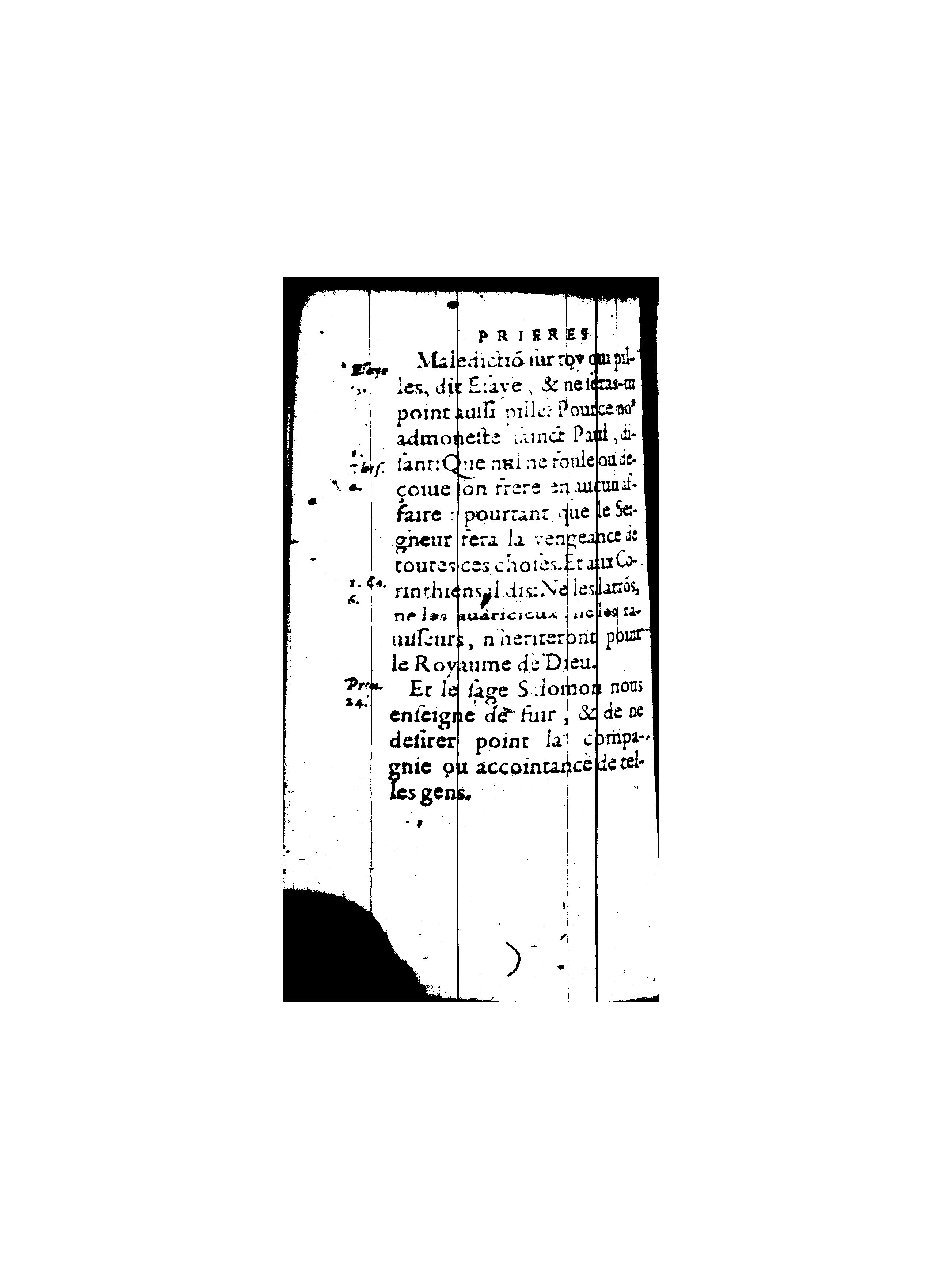 PRIERES
Maledictiõ sur toy qui pil-
Esaye
les, dit Esaye, & ne seras-tu
point aussi pillé? Pource no⁹
admoneste sainct Paul, di-
1.
sant: Que nul ne foule ou de-
Thess.
çoiue son frere en aucun af-
faire : pourtant que le Sei-
gneur fera la vengeance de
toutes ces choses. Et aux Co-
1. Co.
rinthiens il dit: Ne les larrõs,
6.
ne les auaricieux, ne les ra-
uisseurs, n'heriteront point
le Royaume de Dieu.
Prou.
Et le sage Salomon nous
24.
enseigne de fuir, & de ne
desirer point la compa-
gnie ou accointance de tel-
les gens.